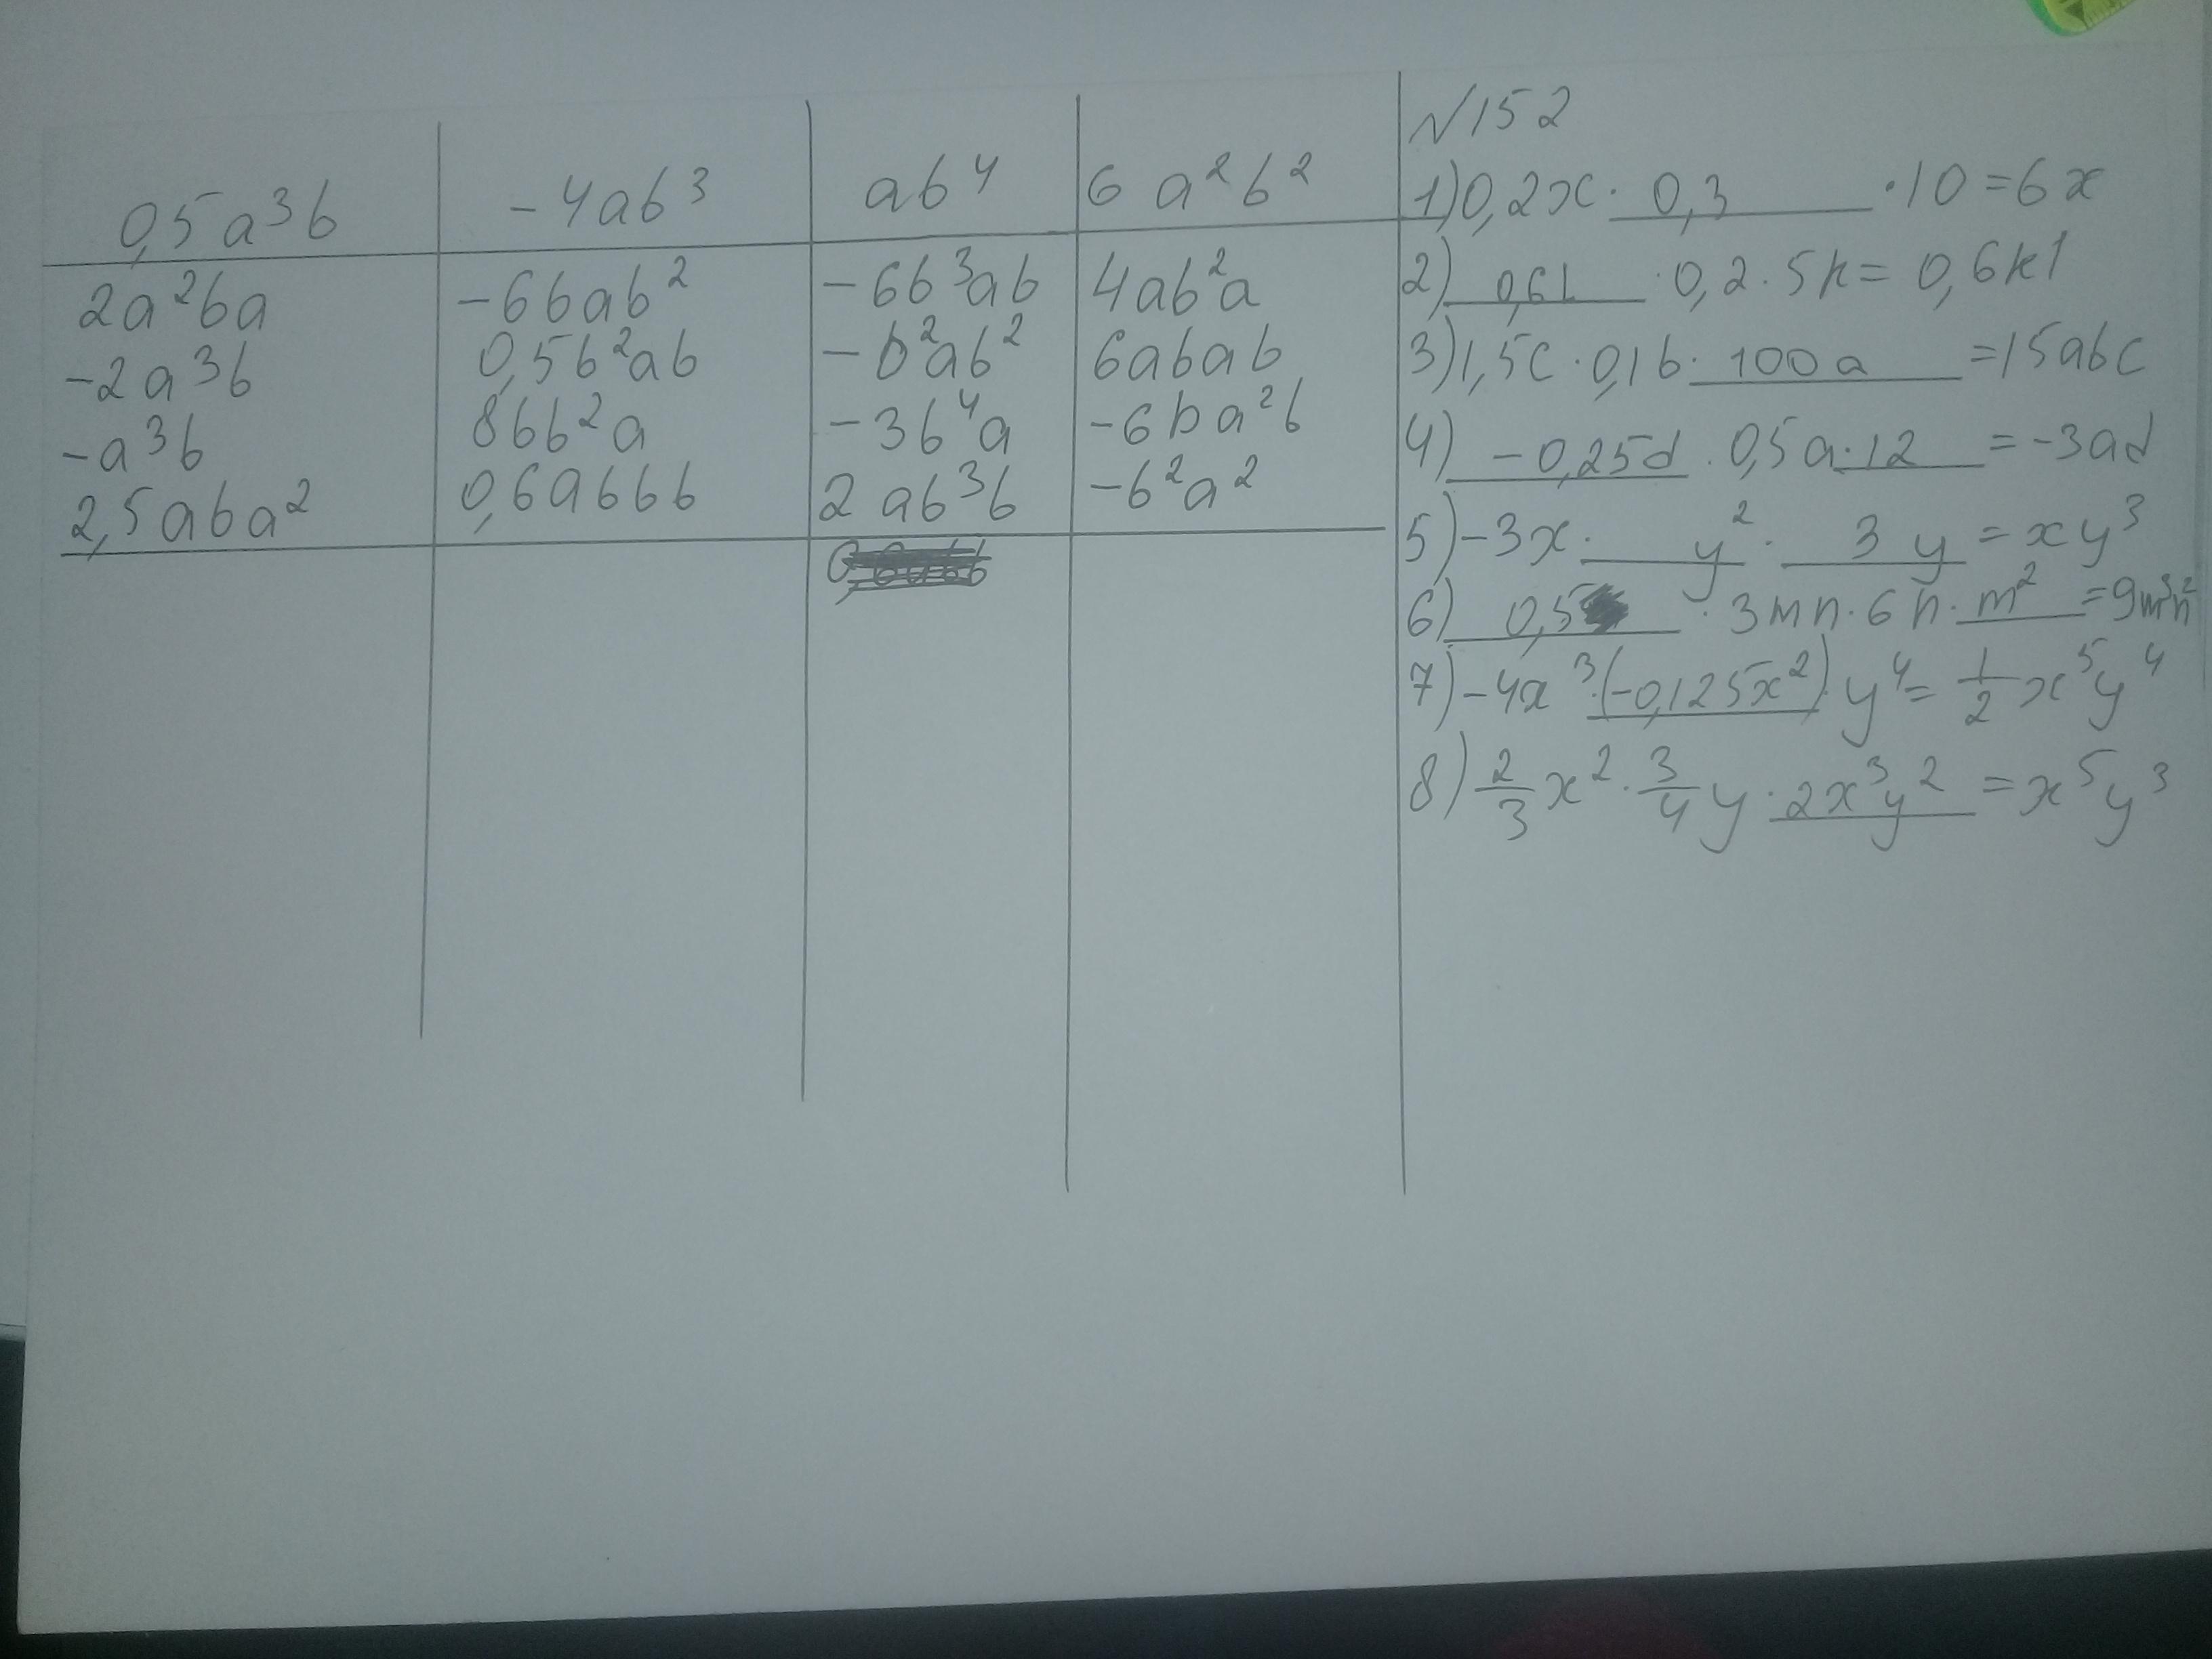 0,5a³b | -4ab³ | ab⁴ | 6 a²b²
2a²ba | -6bab² | -6b³ab | 4ab²a
-2a³b | 0,5b²ab | -b²ab² | 6abab
-a³b | 8bb²a | -3b⁴a | -6ba²b
2,5aba² | 0,6abbb | 2 ab³b | -b²a²
№152
1) 0,2x · 0,3 · 10 = 6x
2) 0,6l · 0,2 · 5k = 0,6kl
3) 1,5c · 0,1b · 100a = 15abc
4) -0,25d · 0,5a · 12 = -3ad
5) -3x · y² · 3 y = xy³
6) 0,5 · 3mn · 6n · m² = 9m³n²
7) -4x³ · (-0,125x²) · y⁴ = 1/2 x⁵y⁴
8) 2/3 x² · 3/4 y · 2x³y² = x⁵y³